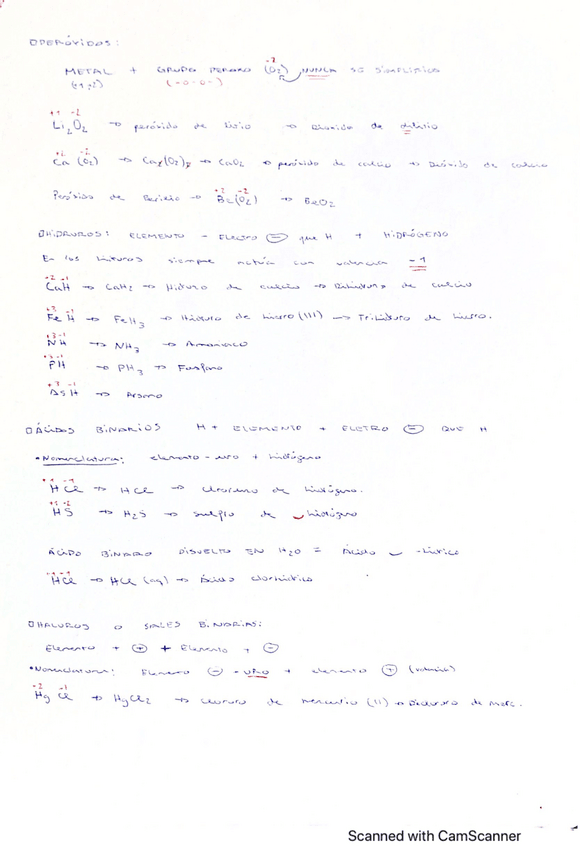 OPERÓXIDOS:
METAL + GRUPO PEROXO (O₂)⁻² NUNCA SE SIMPLIFICA
(+1,+2) (-O-O-)
+1 -2
Li₂O₂ → peróxido de litio → Dióxido de dilitio
+2 -2
Ca (O₂) → Ca₂(O₂)₂ → CaO₂ → peróxido de calcio → Dióxido de calcio
+2 -2
Peróxido de Berilio → Be(O₂) → BeO₂
OHIDRUROS: ELEMENTO - Electro ⊖ que H + HIDRÓGENO
En los hidruros siempre actúa con valencia -1
+2 -1
CaH → CaH₂ → Hidruro de calcio → Dihidruro de calcio
+3 -1
Fe H → FeH₃ → Hidruro de hierro (III) → Trihidruro de hierro.
+3 -1
NH → NH₃ → Amoniaco
+3 -1
PH → PH₃ → Fosfano
+3 -1
AsH → Arsano
OÁCIDOS BINARIOS H + ELEMENTO + ELETRO ⊖ QUE H
• Nomenclatura: elemento - uro + hidrógeno
+1 -1
HCl → HCl → cloruro de hidrógeno.
+1 -2
HS → H₂S → sulfuro de hidrógeno
ÁCIDO BINARIO DISUELTO EN H₂O = Ácido -hídrico
+1 -1
HCl → HCl (aq) → Ácido clorhídrico
OHALUROS O SALES BINARIAS:
Elemento + ⊕ + Elemento + ⊖
• Nomenclatura: Elemento ⊖ - uro + elemento ⊕ (valencia)
+2 -1
Hg Cl → HgCl₂ → cloruro de mercurio (II) → Dicloruro de merc.
Scanned with CamScanner